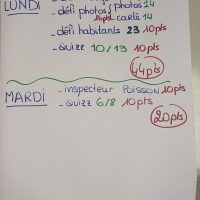 LUNDI
- défi photos photos 14
10pts carte 14
- défi habitants 23 10pts
- quizz 10/13 10pts
44pts
MARDI - inspecteur Poisson 10pts
- quizz 6/8 10pts
20pts